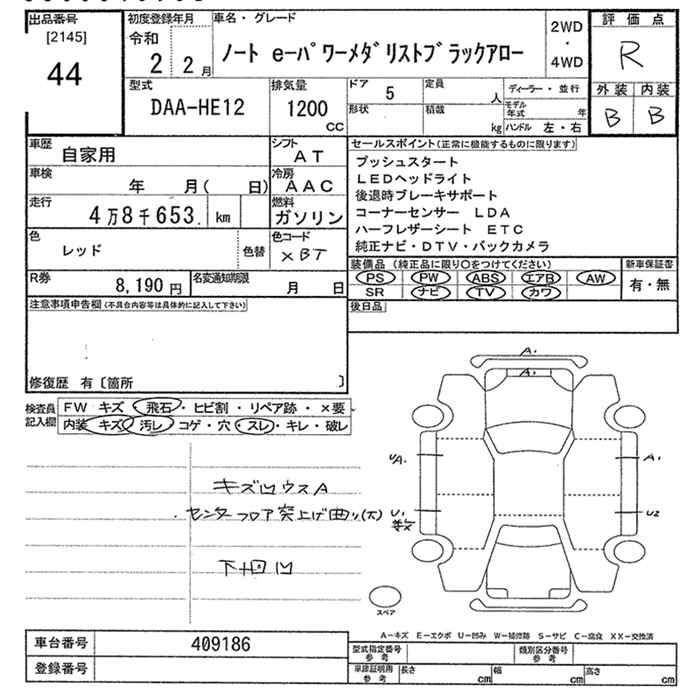 出品番号
[2145]
44
初度登録年月
令和
2 2月
車名・グレード
ノート e-パワーメダリストブラックアロー
2WD
・
4WD
評価点
R
外装 内装
B B
型式
DAA-HE12
排気量
1200
CC
ドア 5
定員 人
形状
積載 kg
ディーラー・並行
モデル年式 年
ハンドル 左・右
車歴 自家用
シフト AT
車検 年 月( 日)
冷房 AAC
走行 4万8千653. km
燃料 ガソリン
色 レッド
色替
色コード XBT
R券 8,190円
名変通知期限 月 日
セールスポイント(正常に機能するものに限ります)
プッシュスタート
LEDヘッドライト
後退時ブレーキサポート
コーナーセンサー LDA
ハーフレザーシート ETC
純正ナビ・DTV・バックカメラ
装備品(純正品に限り○をつけてください)
PS PW ABS エアB AW
SR ナビ TV カワ
新車保証書
有・無
後日品
注意事項申告欄(不具合内容等は具体的に記入して下さい)
修復歴 有〔箇所 〕
検査員記入欄
FW キズ・飛石・ヒビ割・リペア跡・×要
内装 キズ・汚レ・コゲ・穴・スレ・キレ・破レ
キズ凹ウスA
センターフロア突上げ曲り(大)
下回凹
A1
A1
A1
U1
U2
スペア
A-キズ E-エクボ U-凹み W-補修跡 S-サビ C-腐食 XX-交換済
車台番号 409186
登録番号
型式指定番号 参考
類別区分番号 参考
車庫証明用 参考
長さ cm
幅 cm
高さ cm